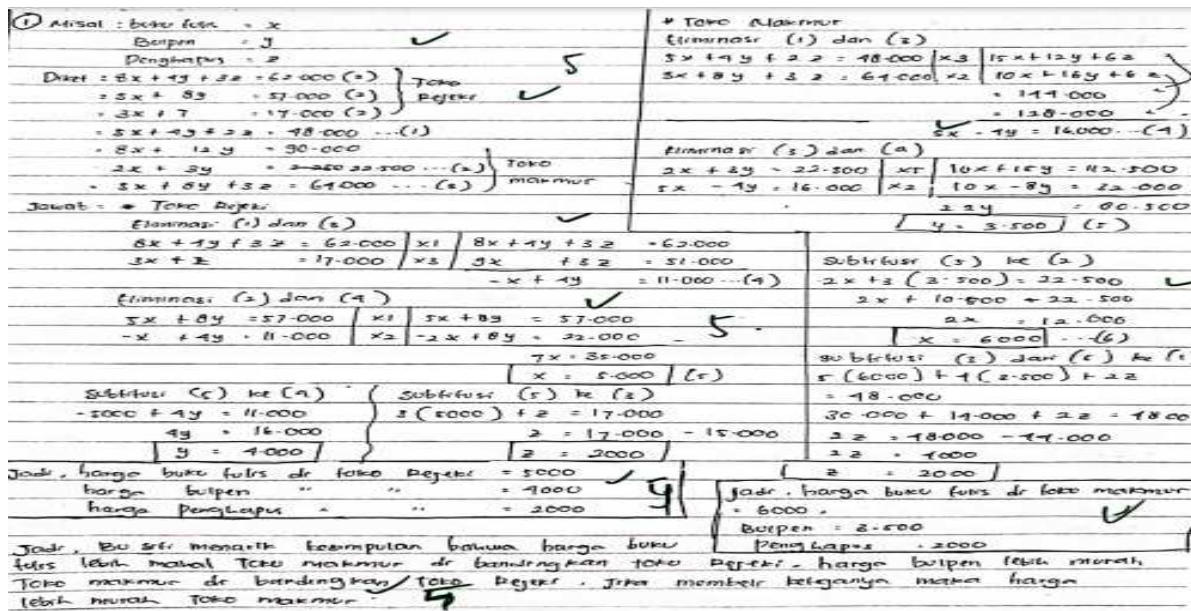 ① Misal : buku tulis = x
Bulpen = y
Penghapus = z
5
Diket = 8x + 4y + 3z = 62.000 (1)
= 5x + 8y = 57.000 (2)
= 3x + z = 17.000 (3)
Toko Rejeki
= 5x + 4y + 2z = 48.000 ...(1)
= 8x + 12y = 90.000
2x + 3y = 22.500 ...(2)
= 5x + 8y + 3z = 64.000 ...(3)
Toko makmur
Jawab = * Toko Rejeki
Eliminasi (1) dan (3)
8x + 4y + 3z = 62.000 | x1 | 8x + 4y + 3z = 62.000
3x + z = 17.000 | x3 | 9x + 3z = 51.000
-x + 4y = 11.000 ...(4)
Eliminasi (2) dan (4)
5x + 8y = 57.000 | x1 | 5x + 8y = 57.000
-x + 4y = 11.000 | x2 | -2x + 8y = 22.000
5
7x = 35.000
x = 5.000 (5)
Subtitusi (5) ke (4)
-5000 + 4y = 11.000
4y = 16.000
y = 4000
Subtitusi (5) ke (3)
3(5000) + z = 17.000
z = 17.000 - 15.000
z = 2000
Jadi, harga buku tulis di toko Rejeki = 5000
harga bulpen " " = 4000
harga Penghapus " " = 2000
4
* Toko Makmur
Eliminasi (1) dan (3)
5x + 4y + 2z = 48.000 | x3 | 15x + 12y + 6z
5x + 8y + 3z = 64.000 | x2 | 10x + 16y + 6z
= 144.000
= 128.000
5x - 4y = 16.000 ...(4)
Eliminasi (2) dan (4)
2x + 3y = 22.500 | x5 | 10x + 15y = 112.500
5x - 4y = 16.000 | x2 | 10x - 8y = 32.000
23y = 80.500
y = 3.500 (5)
Subtitusi (5) ke (2)
2x + 3(3.500) = 22.500
2x + 10.500 = 22.500
2x = 12.000
x = 6000 ...(6)
Subtitusi
5(6000) + 4(3.500) + 2z
= 48.000
30.000 + 14.000 + 2z = 4800
2z = 48.000 - 44.000
2z = 4000
z = 2000
Jadi, harga buku tulis di toko makmur
= 6000.
Bulpen = 3.500
Penghapus = 2000
Jadi, Bu siti menarik kesimpulan bahwa harga buku
tulis lebih mahal Toko makmur di bandingkan toko Rejeki. harga bulpen lebih murah
Toko makmur di bandingkan toko Rejeki. Jika membeli ketiganya maka harga
lebih murah Toko makmur.